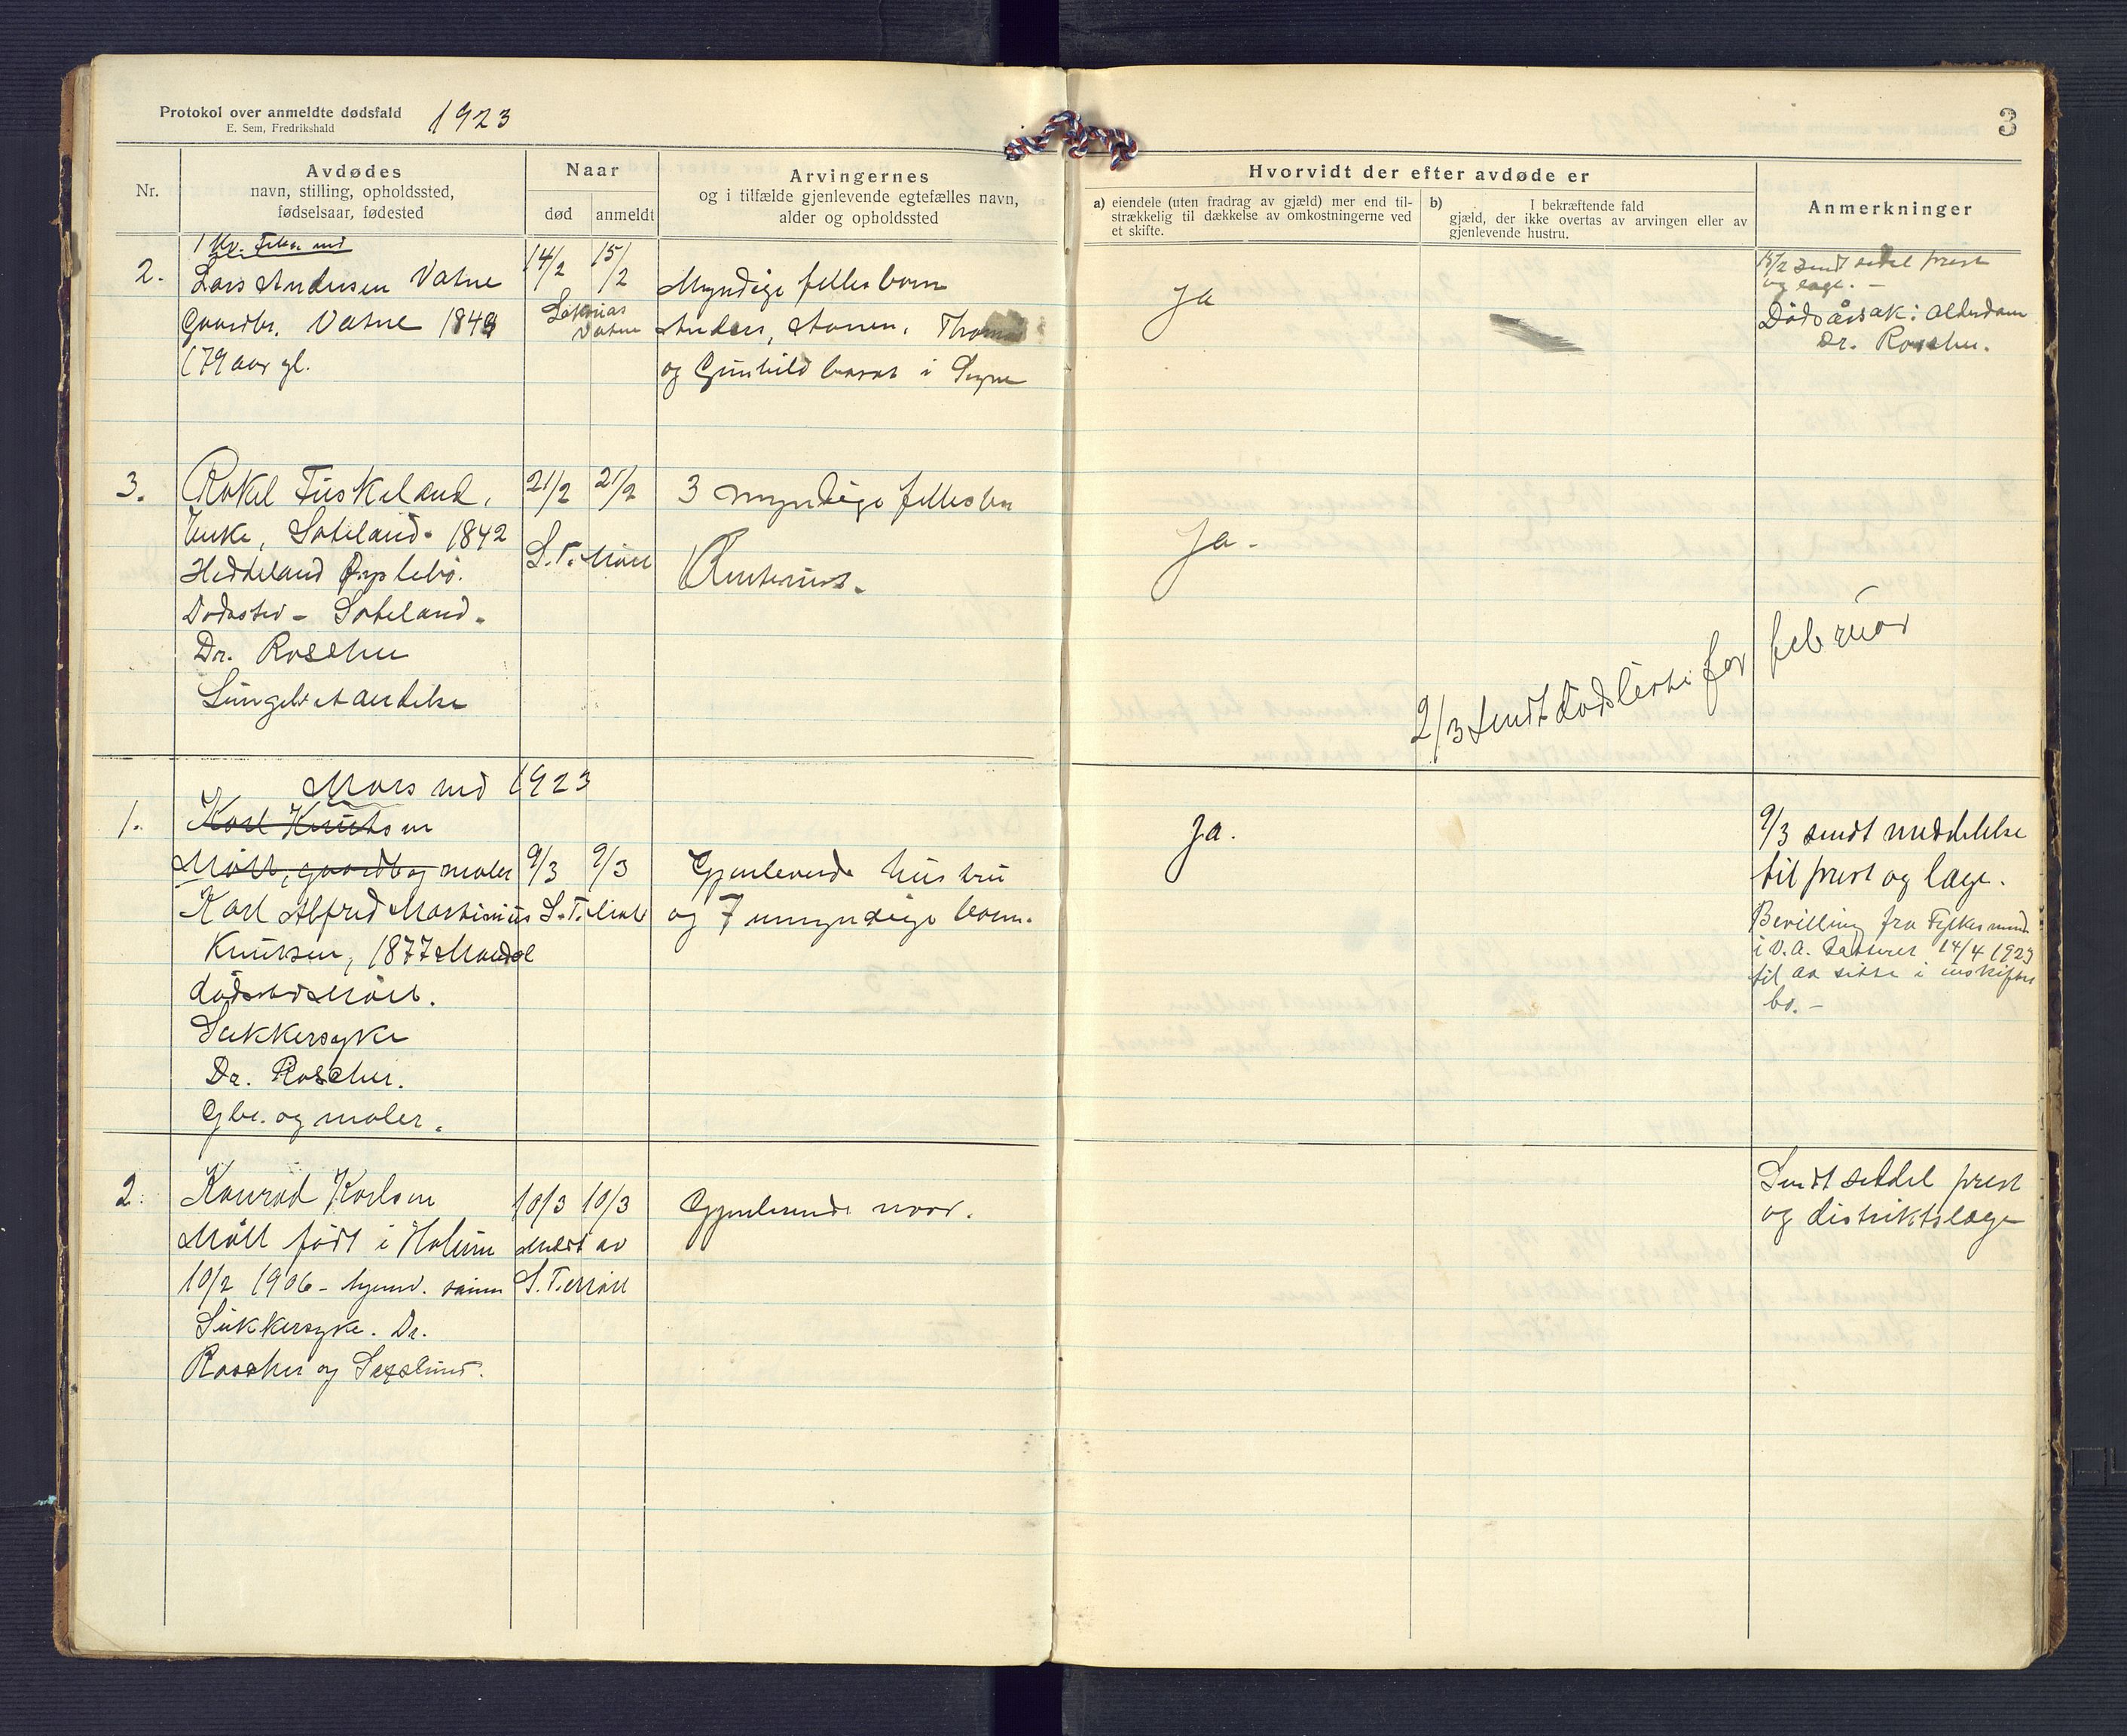 Protokol over anmeldte dødsfald
E. Sem, Fredrikshald
1923
3
Nr.
Avdødes
navn, stilling, opholdssted,
fødselsaar, fødested
Naar
død
anmeldt
Arvingernes
og i tilfælde gjenlevende egtefælles navn,
alder og opholdssted
Hvorvidt der efter avdøde er
a) eiendele (uten fradrag av gjæld) mer end til-
strækkelig til dækkelse av omkostningerne ved
et skifte.
b) I bekræftende fald
gjæld, der ikke overtas av arvingen eller av
gjenlevende hustru.
Anmerkninger
2.
Lars Andersen Vatne
Gaardbr. Vatne 1843
(79 aar gl.
14/2
15/2
Vatne
Myndige felles born
Anders, Aanen, Thomas
og Gunhild bosat i Søgne
Ja
15/2 sendt sedel prest
og læge. -
Dødsårsak: Alderdom
Dr. Roscher.
3.
Rakel Fuskeland,
Enke, Soteland. 1842
Heddeland Øyslebø.
Dødssted - Soteland.
Dr. Roscher
21/2
21/2
S. T. Møll
3 myndige felles
Ja.
2/3 sendt dødsliste for februar
Mars md 1923
1.
Karl Knutsen
Møll, gaardb og maler
Karl Alfred Martinius
Knutsen, 1877 Mandal
dødssted Møll.
Sukkersyke
Dr. Roscher.
Gbr. og maler.
9/3
9/3
Gjenlevende hustru
og 7 umyndige born.
Ja.
9/3 sendt meddelelse
til prest og læge.
Bevilling fra Fylkesmand
i V. A. datert 14/4 1923
til at sitte i uskiftet
bo. -
2.
Konrad Karlsen
Møll født i Holum
10/2 1906 -
Sukkersyke. Dr.
Roscher og
10/3
10/3
Meldt av
S. T. Møll
Gjenlevende mor.
Sendt seddel prest
og distriktslæge